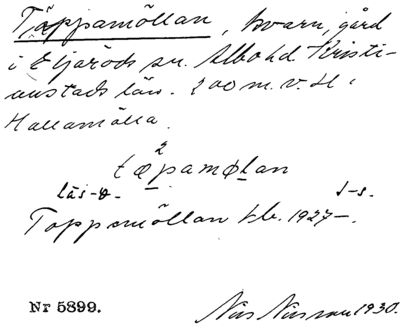 Täppamöllan, kvarn, gård
i Eljaröds sn. Albo hd Kristi-
anstads län. 200 m. v. 
Hallamölla.
2
tæpamøłan
läs-
Toppemöllan  1927-.
Nr 5899.
Nils Nilsson 1930.